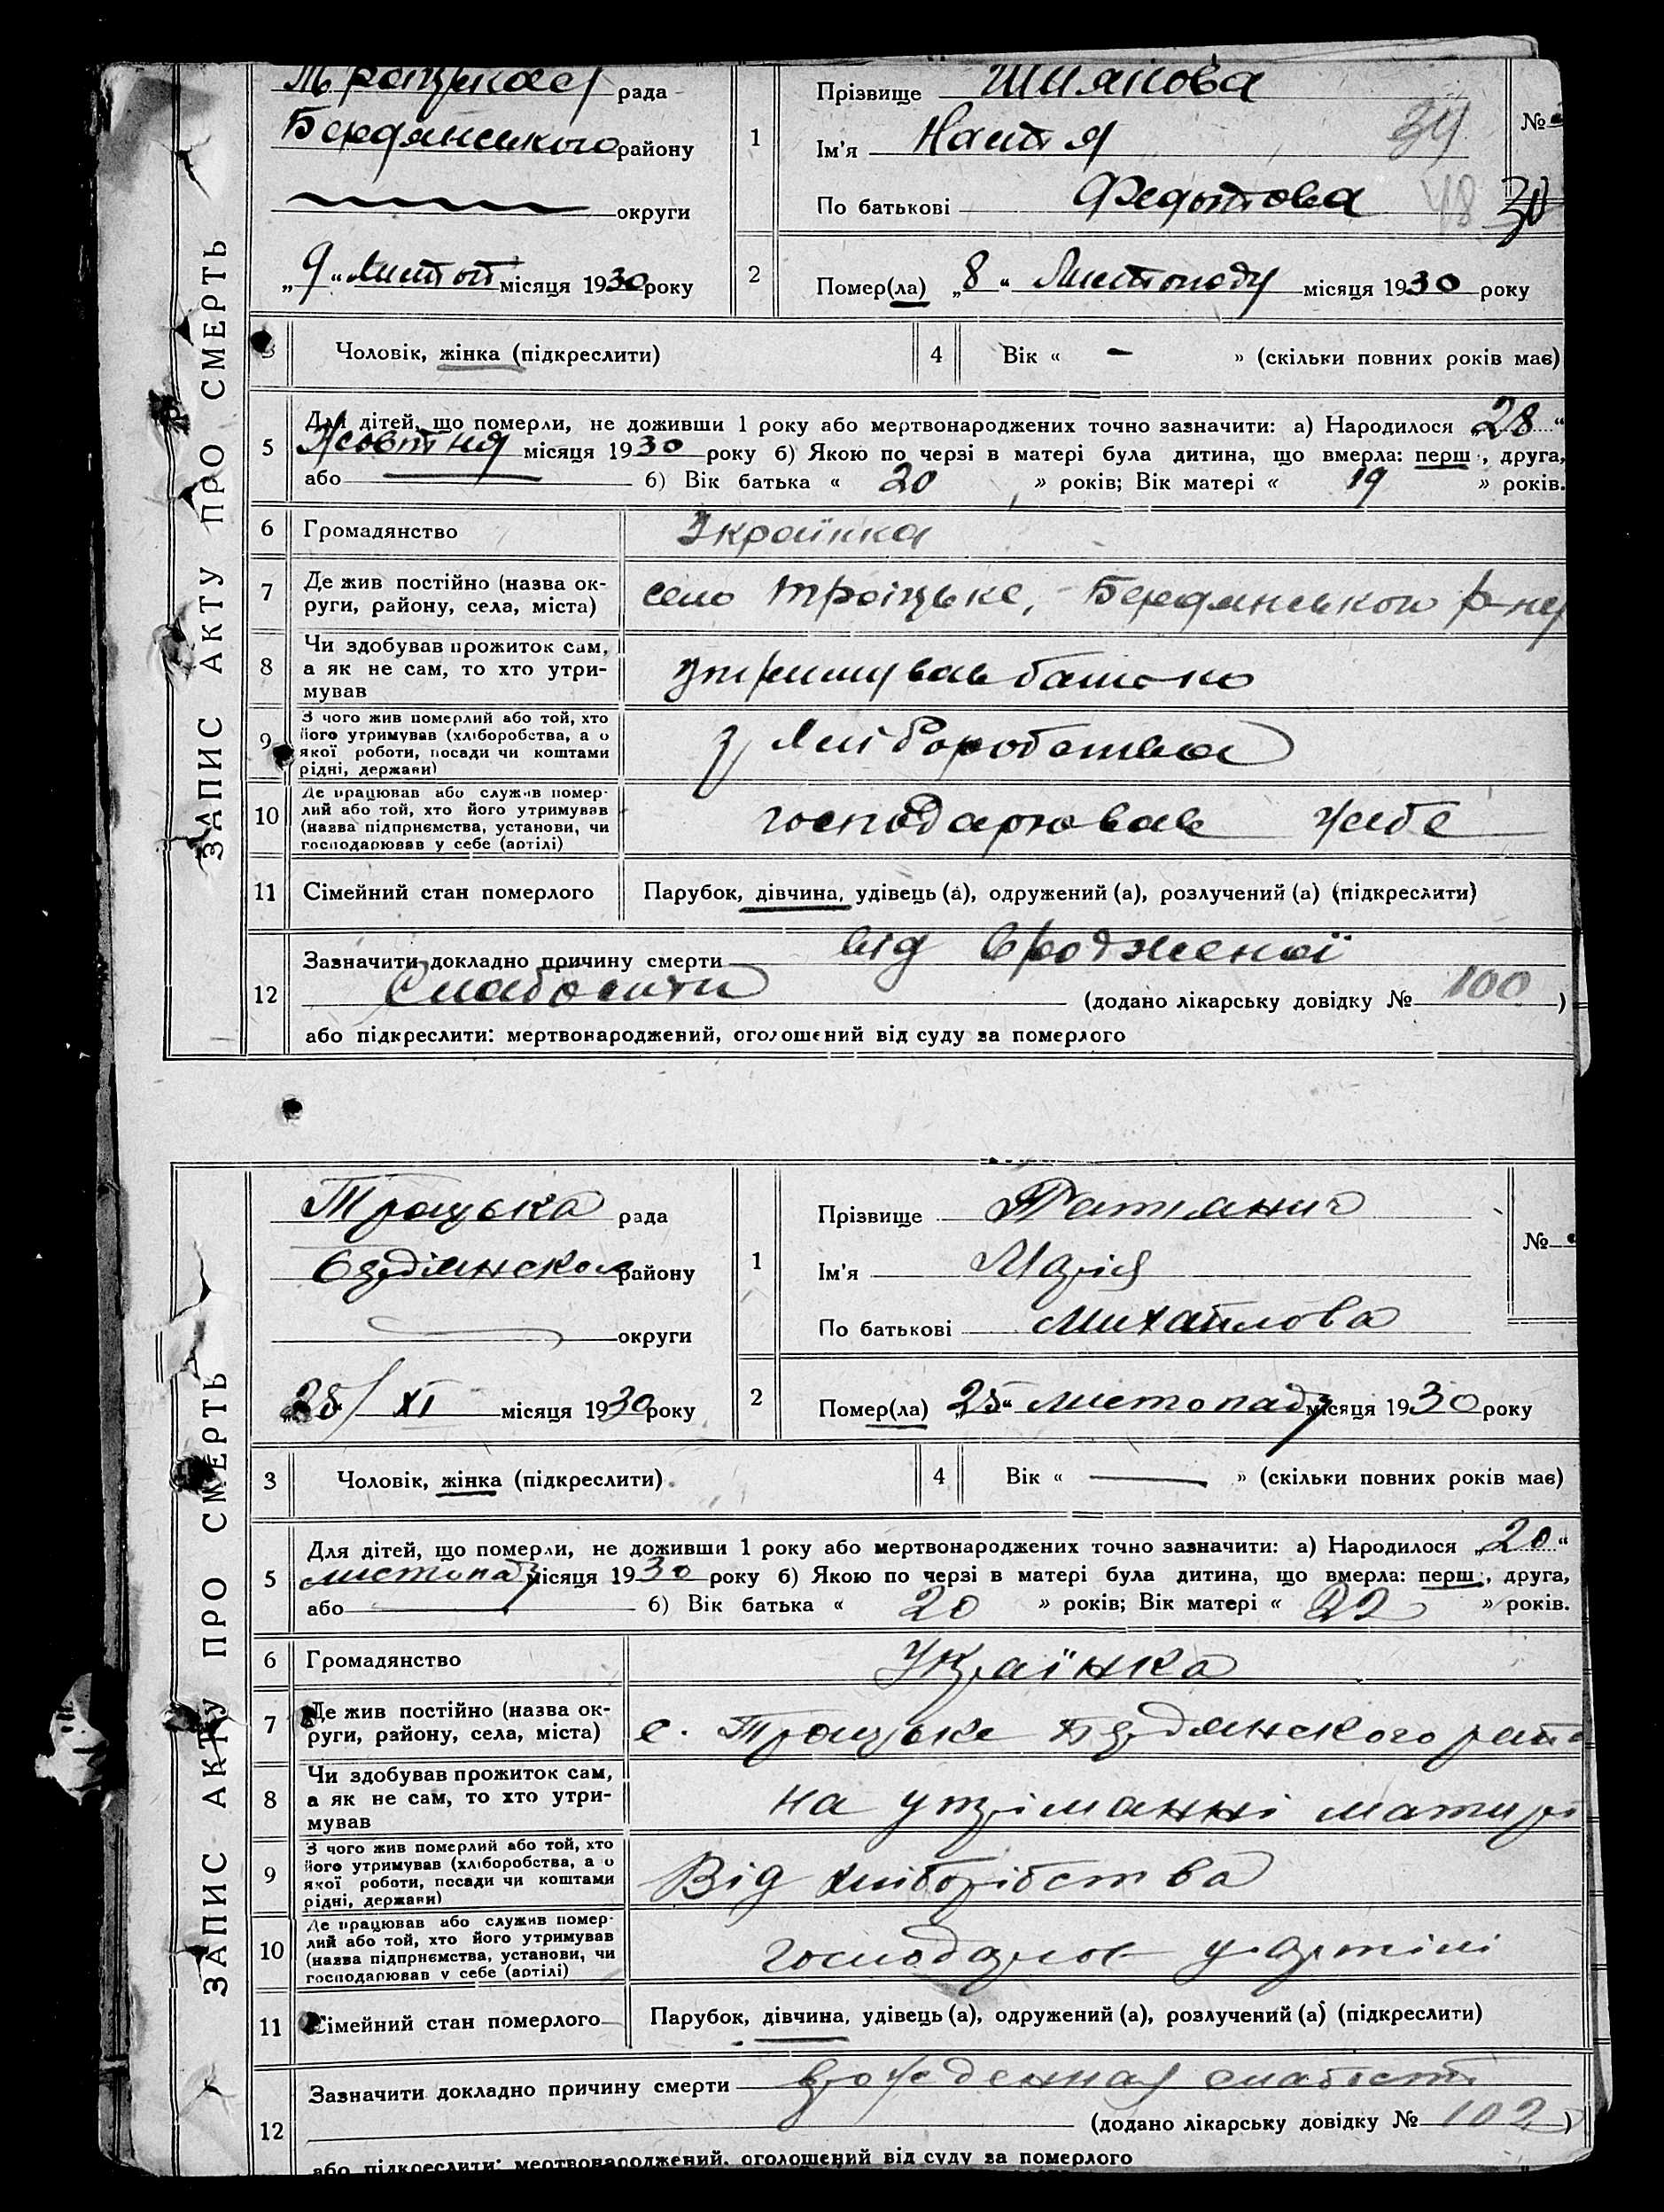 ЗАПИС АКТУ ПРО СМЕРТЬ
рада
Бердянського району
округи
„9“ Листоп місяця 1930 року
1
Прізвище
Ім'я Настя
По батькові Федотова
34
48
30
№
2
Помер(ла) „8“ Листопаду місяця 1930 року
3
Чоловік, жінка (підкреслити)
4
Вік « – » (скільки повних років має)
5
Для дітей, що померли, не доживши 1 року або мертвонароджених точно зазначити: а) Народилося „28“
Жовтня місяця 1930 року б) Якою по черзі в матері була дитина, що вмерла: перш , друга,
або 6) Вік батька « 20 » років; Вік матері « 19 » років.
6
Громадянство
Українка
7
Де жив постійно (назва ок-
руги, району, села, міста)
село Троїцьке, Бердянського р-ну
8
Чи здобував прожиток сам,
а як не сам, то хто утри-
мував
утримував батько
9
З чого жив померлий або той, хто
його утримував (хліборобства, а о
якої роботи, посади чи коштами
рідні, держави)
з хліборобства
10
Де працював або служив помер-
лий або той, хто його утримував
(назва підприємства, установи, чи
господарював у себе (артілі)
господарював у себе
11
Сімейний стан померлого
Парубок, дівчина, удівець (а), одружений (а), розлучений (а) (підкреслити)
12
Зазначити докладно причину смерти від вродженої
слабости (додано лікарську довідку № 100 )
або підкреслити: мертвонароджений, оголошений від суду за померлого
ЗАПИС АКТУ ПРО СМЕРТЬ
Троцька рада
району
округи
XI місяця 1930 року
1
Прізвище
Ім'я Марія
По батькові Михайлова
№
2
Помер(ла) „25“ листопаду місяця 1930 року
3
Чоловік, жінка (підкреслити)
4
Вік « — » (скільки повних років має)
5
Для дітей, що померли, не доживши 1 року або мертвонароджених точно зазначити: а) Народилося „20“
листопад місяця 1930 року б) Якою по черзі в матері була дитина, що вмерла: перш , друга,
або 6) Вік батька « 20 » років; Вік матері « 22 » років.
6
Громадянство
Українка
7
Де жив постійно (назва ок-
руги, району, села, міста)
с. Троцьке Бердянского райо
8
Чи здобував прожиток сам,
а як не сам, то хто утри-
мував
на утріманні матирі
9
З чого жив померлий або той, хто
його утримував (хліборобства, а о
якої роботи, посади чи коштами
рідні, держави)
Від хліборібства
10
Де працював або служив помер-
лий або той, хто його утримував
(назва підприємства, установи, чи
господарював у себе (артілі)
у артілі
11
Сімейний стан померлого
Парубок, дівчина, удівець (а), одружений (а), розлучений (а) (підкреслити)
12
Зазначити докладно причину смерти врожденная слабість
(додано лікарську довідку № 102 )
або підкреслити: мертвонароджений, оголошений від суду за померлого